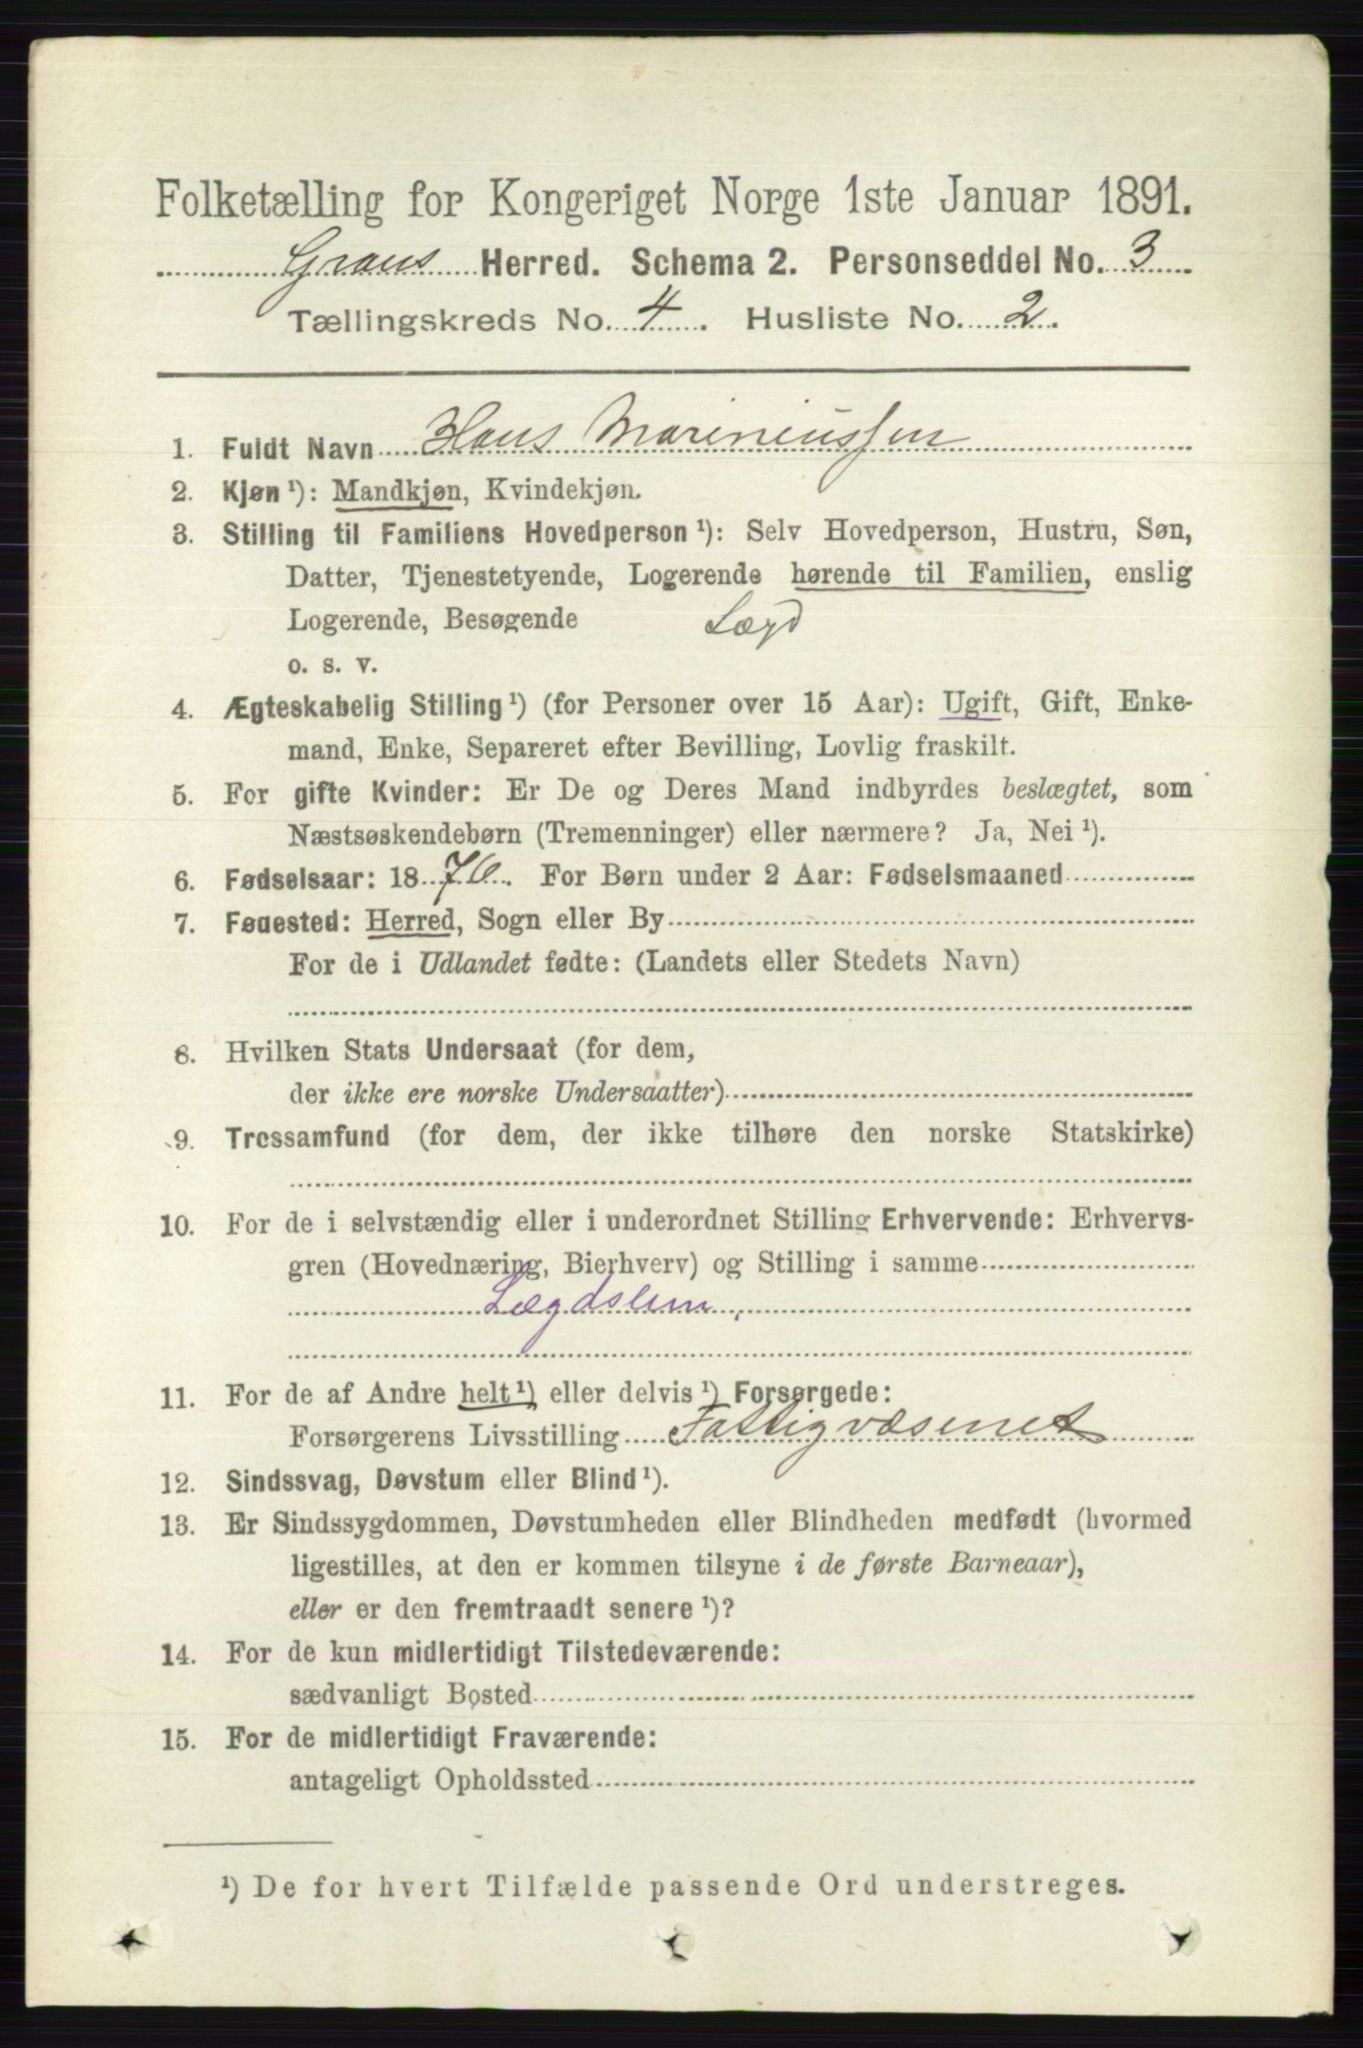 Folketælling for Kongeriget Norge 1ste Januar 1891.
Grans Herred. Schema 2. Personseddel No. 3
Tællingskreds No. 4. Husliste No. 2.
1. Fuldt Navn Hans Mariniussen
2. Kjøn ¹): Mandkjøn, Kvindekjøn.
3. Stilling til Familiens Hovedperson ¹): Selv Hovedperson, Hustru, Søn,
Datter, Tjenestetyende, Logerende hørende til Familien, enslig
Logerende, Besøgende Lægd
o. s. v.
4. Ægteskabelig Stilling ¹) (for Personer over 15 Aar): Ugift, Gift, Enke-
mand, Enke, Separeret efter Bevilling, Lovlig fraskilt.
5. For gifte Kvinder: Er De og Deres Mand indbyrdes beslægtet, som
Næstsøskendebørn (Tremenninger) eller nærmere? Ja, Nei ¹).
6. Fødselsaar: 1876. For Børn under 2 Aar: Fødselsmaaned
7. Fødested: Herred, Sogn eller By
For de i Udlandet fødte: (Landets eller Stedets Navn)
8. Hvilken Stats Undersaat (for dem,
der ikke ere norske Undersaatter)
9. Trossamfund (for dem, der ikke tilhøre den norske Statskirke)
10. For de i selvstændig eller i underordnet Stilling Erhvervende: Erhvervs-
gren (Hovednæring, Bierhverv) og Stilling i samme
Lægdslem,
11. For de af Andre helt ¹) eller delvis ¹) Forsørgede:
Forsørgerens Livsstilling Fattigvæsenet
12. Sindssvag, Døvstum eller Blind ¹).
13. Er Sindssygdommen, Døvstumheden eller Blindheden medfødt (hvormed
ligestilles, at den er kommen tilsyne i de første Barneaar),
eller er den fremtraadt senere ¹)?
14. For de kun midlertidigt Tilstedeværende:
sædvanligt Bosted
15. For de midlertidigt Fraværende:
antageligt Opholdssted
¹) De for hvert Tilfælde passende Ord understreges.